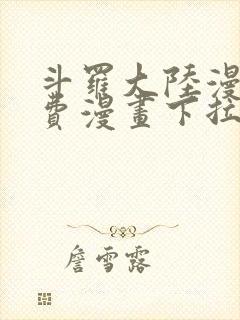 斗羅大陸漫
費漫畫下拉
詹雪露